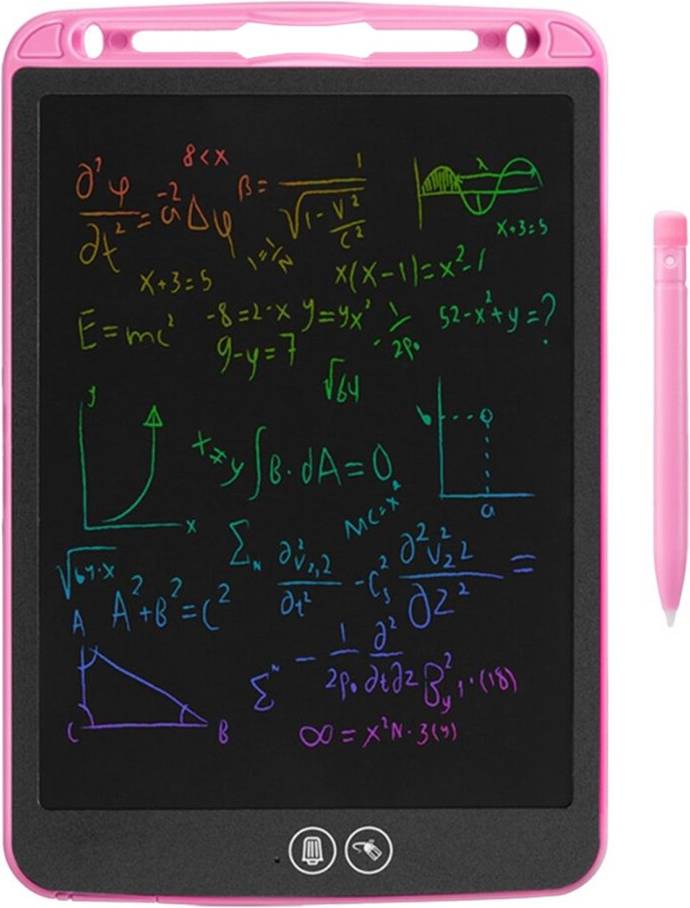 8<x
∂²φ/∂t² = a⁻²Δφ
β = 1/√(1-v²/c²)
λ
x+3=5
1=1/N
x+3=5
x(x-1)=x²-1
E=mc²
-8=2-x
y=yx²
-1/2P₀
52-x²+y=?
9-y=7
√64
y
x
x≠y
∫B·dA=0
b
a
MC=x²
√64·x
Σₙ ∂²v₂,₂/∂t² - C₃² ∂²v₂²/∂z² =
A²+B²=C²
A
C
B
Σᴺ - 1/2P₀ ∂²/∂t∂z B²y,·(18)
∞=x²N·3(y)